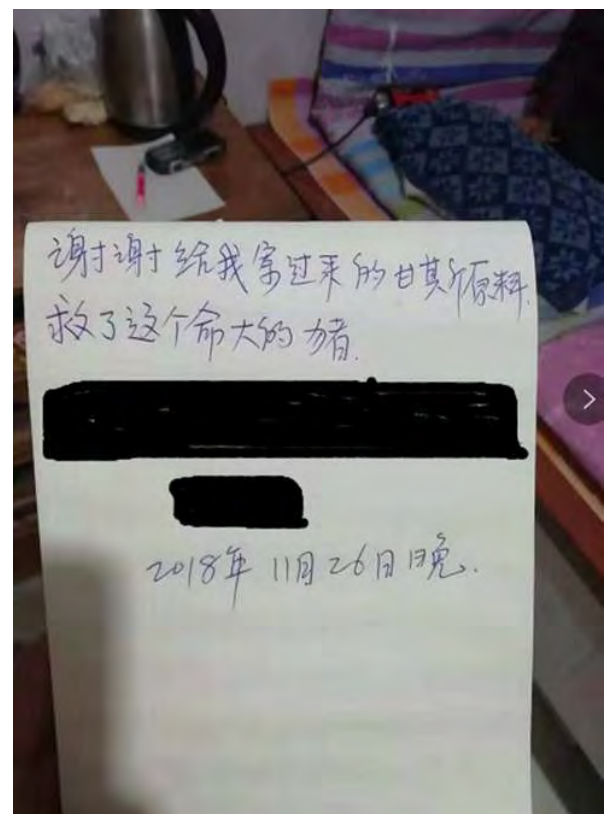 谢谢给我过来的甘斯原料.
救了这个命大的猪.
2018年11月26日晚.